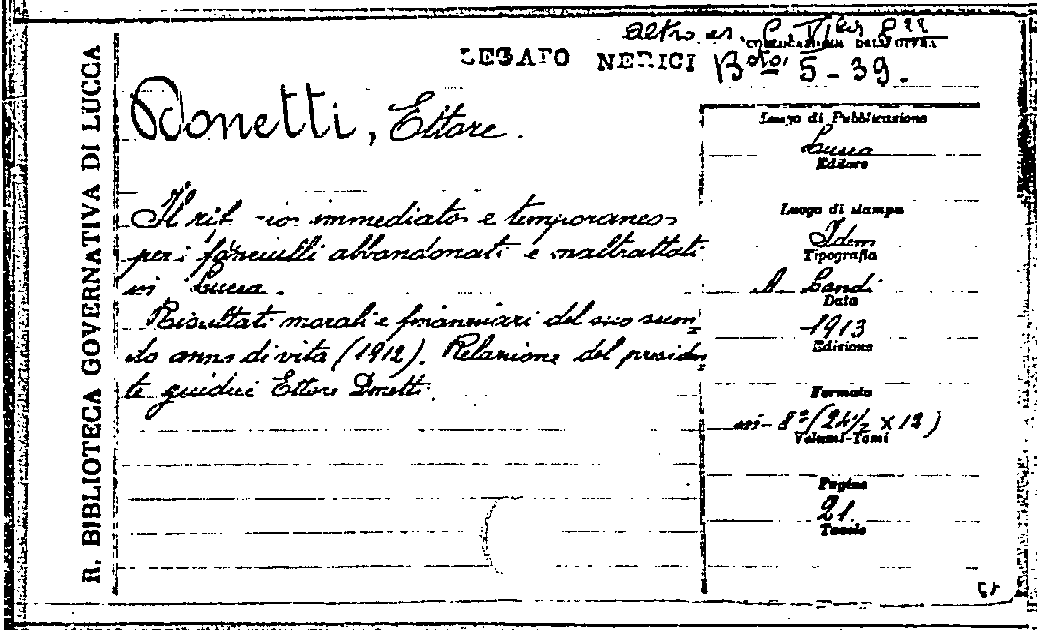 R. BIBLIOTECA GOVERNATIVA DI LUCCA
altro es.
COLLOCAZIONE DELL'OPERA
LEGATO NERICI 5-39.
Donetti, Ettore.
Il rif -io immediato e temporaneo
per i fanciulli abbandonati e maltrattati
in Lucca.
Risultati morali e finanziari del suo secon-
do anno di vita (1912). Relazione del presiden-
te giudice Ettore Donetti.
Luogo di Pubblicazione
Lucca
Editore
Luogo di stampa
Idem
Tipografia
A. Landi
Data
1913
Edizione
Formato
in-8º (24½ x 12)
Volumi-Tomi
Pagine
21.
Tavole